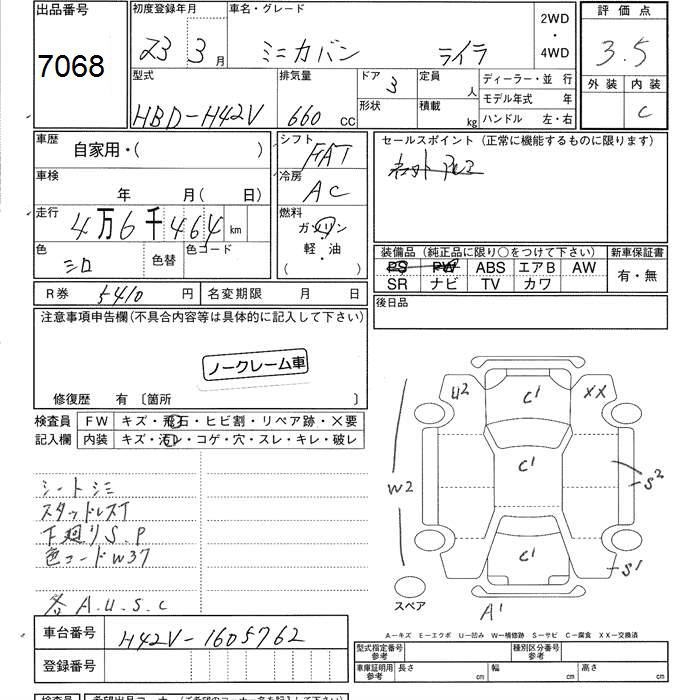 出品番号
7068
初度登録年月
車名・グレード
23 3 月 ミニカバン ライラ
2WD
・
4WD
評価点
3.5
外装 内装
C
型式
HBD-H42V
排気量
660 CC
ドア 3
形状
定員 人
積載 kg
ディーラー・並 行
モデル年式 年
ハンドル 左・右
車歴
自家用・( )
シフト
FAT
車検
年 月( 日)
冷房
AC
走行
4万6千464 km
燃料
ガソリン
・
軽・油
( )
色
シロ
色替
色コード
R券 5410 円
名変期限 月 日
セールスポイント(正常に機能するものに限ります)
装備品(純正品に限り○をつけて下さい)
PS PW ABS エアB AW
SR ナビ TV カワ
新車保証書
有・無
後日品
注意事項申告欄(不具合内容等は具体的に記入して下さい)
ノークレーム車
修復歴 有〔箇所
検査員
記入欄
FW キズ・飛石・ヒビ割・リペア跡・×要
内装 キズ・汚レ・コゲ・穴・スレ・キレ・破レ
シートシミ
スタッドレスT
下廻りS.P
色コードW37
各A.U.S.C
U2 C' XX
C'
W2 S2
C'
S'
スペア
A'
A-キズ E-エクボ U-凹み W-補修跡 S-サビ C-腐食 XX-交換済
車台番号 H42V-1605762
登録番号
型式指定番号
参考
種別区分番号
参考
車庫証明用
参考
長さ cm 幅 cm 高さ cm
検査員
希望出品コーナー(ご希望のコーナー名を記入して下さい)